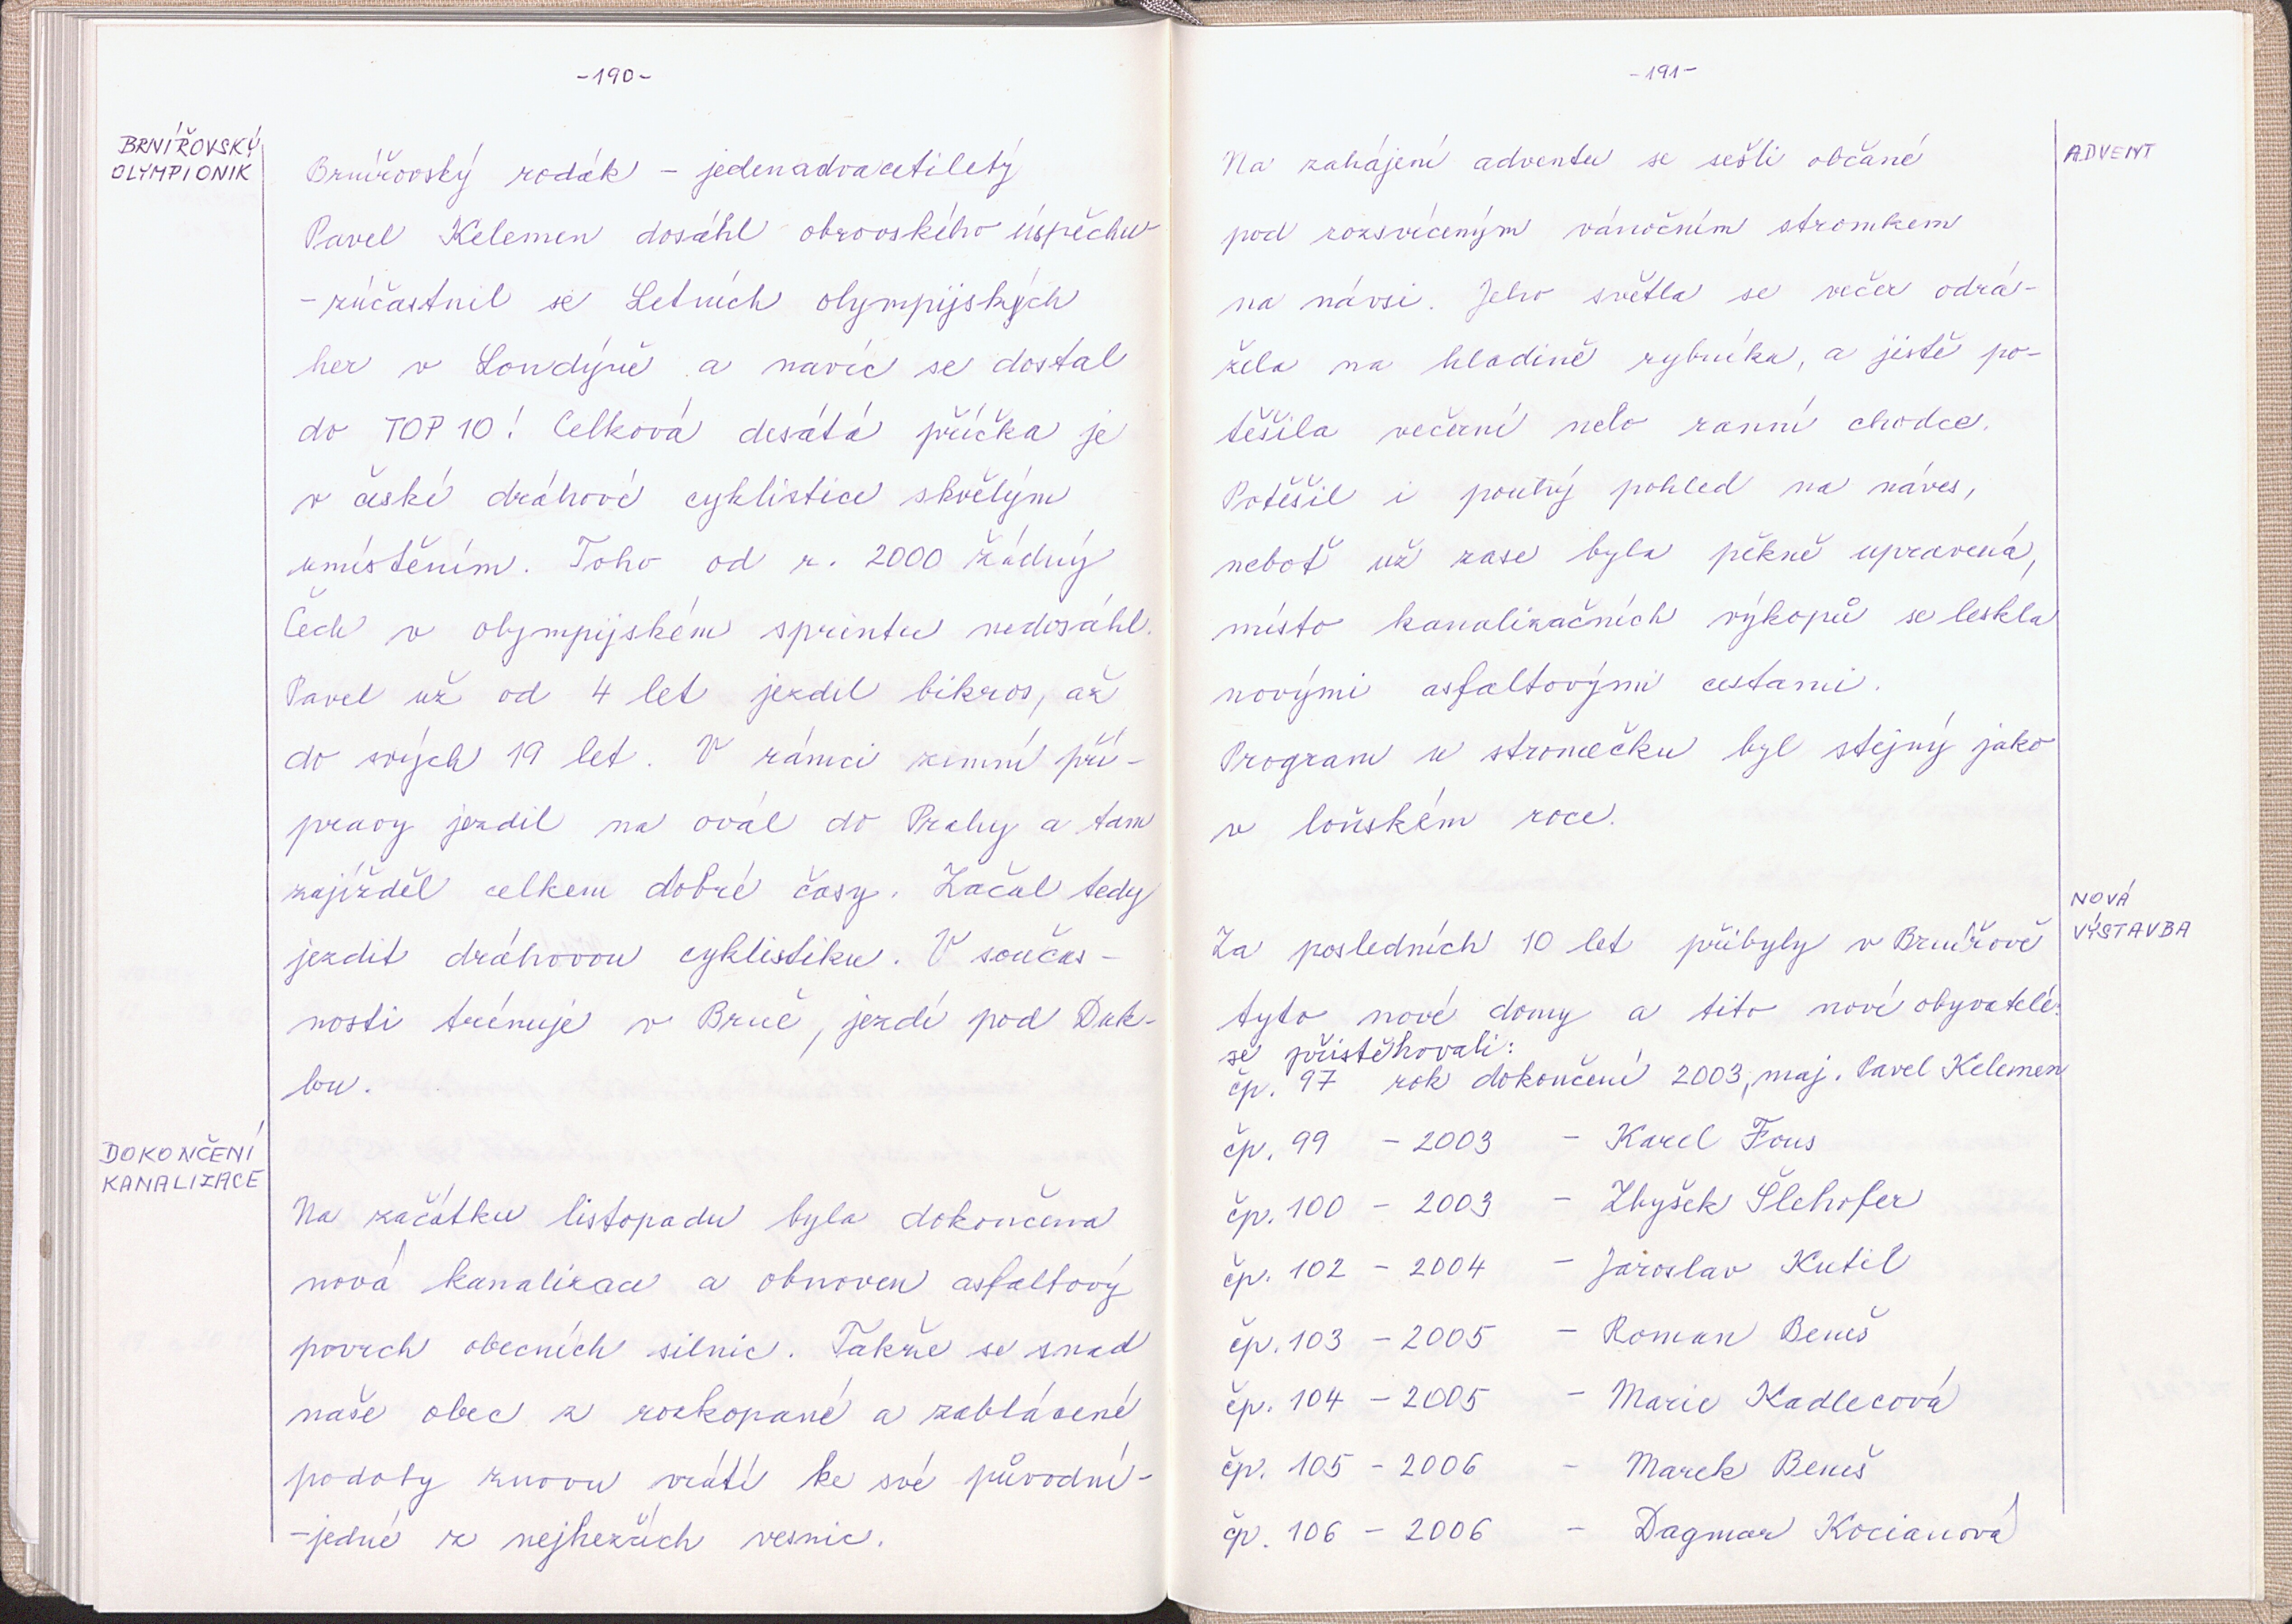 -190-
BRNÍŘOVSKÝ
OLYMPIONIK
Brnířovský rodák - jedenadvacetiletý
Pavel Kelemen dosáhl obrovského úspěchu
- zúčastnil se Letních olympijských
her v Londýně a navíc se dostal
do TOP 10! Celková desátá příčka je
v české dráhové cyklistice skvělým
umístěním. Toho od r. 2000 žádný
Čech v olympijském sprintu nedosáhl.
Pavel už od 4 let jezdil bikros, až
do svých 19 let. V rámci zimní pří-
pravy jezdil na ovál do Prahy a tam
zajížděl celkem dobré časy. Začal tedy
jezdit dráhovou cyklistiku. V součas-
nosti trénuje v Brně, jezdí pod Duk-
lou.
DOKONČENÍ
KANALIZACE
Na začátku listopadu byla dokončena
nová kanalizace a obnoven asfaltový
povrch obecních silnic. Takže se snad
naše obec z rozkopané a zablácené
podoby znovu vrátí ke své původní-
-jedné z nejhezčích vesnic.
-191-
ADVENT
Na zahájení adventu se sešli občané
pod rozsvíceným vánočním stromkem
na návsi. Jeho světla se večer odrá-
žela na hladině rybníka, a jistě po-
těšila večerní nebo ranní chodce.
Potěšil i pouhý pohled na náves,
neboť už zase byla pěkně upravená,
místo kanalizačních výkopů se leskla
novými asfaltovými cestami.
Program u stromečku byl stejný jako
v loňském roce.
NOVÁ
VÝSTAVBA
Za posledních 10 let přibyly v Brnířově
tyto nové domy a tito noví obyvatelé:
se přistěhovali:
čp. 97 rok dokončení 2003, maj. Pavel Kelemen
čp. 99 - 2003 - Karel Fous
čp. 100 - 2003 - Zbyšek Šlehofer
čp. 102 - 2004 - Jaroslav Kutil
čp. 103 - 2005 - Roman Beneš
čp. 104 - 2005 - Marie Kadlecová
čp. 105 - 2006 - Marek Beneš
čp. 106 - 2006 - Dagmar Kocianová